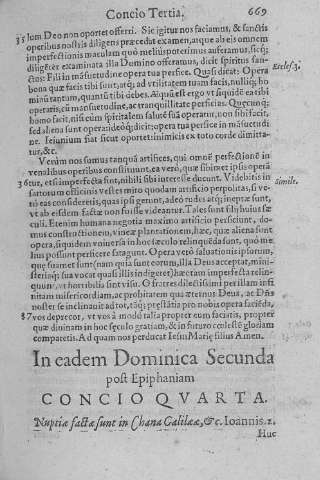 Concio Tertia. 669
35 lom Deo non oportet offerri. Sic igitur nos faciamus, & sanctis
operibus nostris diligens præcedat examen, atque ab eis omnem
imperfectionis maculam quò meliùs poterimus auferamus, sicq;
diligẽter examinata illa Domino offeramus, dicit spiritus san-
ctus: Fili in mãsuetudine opera tua perfice. Quasi dicat: Opera Eccles.3.
bona quæ facis tibi sunt, atq; ad vtilitatem tuam facis, nulliq; ho
minũ tantum, quantũ tibi debes. Æquũ est ergo vt siquidẽ ea tibi
operaris, cũ mansuetudine, ac tranquillitate perficias. Quęcumq;
homo facit, nisi cùm spiritalem salutẽ suã operatur, non sibi facit,
sed aliena sunt operandęq; dicit; opera tua perfice in mãsuetudi
ne. Ieiunium fiat sicut oportet: inimicis ex toto corde dimitta-
tur, &c.
Verùm nos sumus tanquã artifices, qui omnẽ perfectionẽ in
venalibus operibus constituunt, ea verò, quæ sibimet ipsis operã
36 tur, etsi imperfecta sint, nihil sibi interesse ducunt. Videbitis in simile.
sartorum officinis vestes miro quodam artificio perpolitas, si ve-
rò eas consideretis, quas ipsi gerunt, adeò rudes atq; ineptæ sunt,
vt ab eisdem factæ non fuisse videantur. Tales sunt filij huius sæ
culi. Etenim humana negotia maximo artificio perficiunt, do-
mus constructionem, vineæ plantationem, hæc, quæ aliena sunt
opera, siquidem vniuersa in hoc sæculo relinquẽda sunt, quò me
lius possunt perficere satagunt. Opera verò saluationis ipsorum,
quę suamet sunt (nam quia sunt eorum, illa Deus acceptat, mini-
steriaq; sua vocat quasi illis indigeret) hæc tam imperfecta relin-
quunt, vt horribilia sint visu. O fratres dilectissimi per illam infi
nitam misericordiam, ac probitatem quæ æternus Deus, ac Dñs
noster se inclinauit ad tot, tãtaq; præstãtia pro nobis opera facienda,
37 vos deprecor, vt vos à modò talia propter eum faciatis, propter
quæ diuinam in hoc sęculo gratiam, & in futuro cælestẽ gloriam
comparetis. Ad quam nos perducat Iesus Marię filius Amen.
In eadem Dominica Secunda
post Epiphaniam
CONCIO QVARTA.
Nuptiæ factæ sunt in Chana Galilææ, &c. Ioannis.2.
Huc